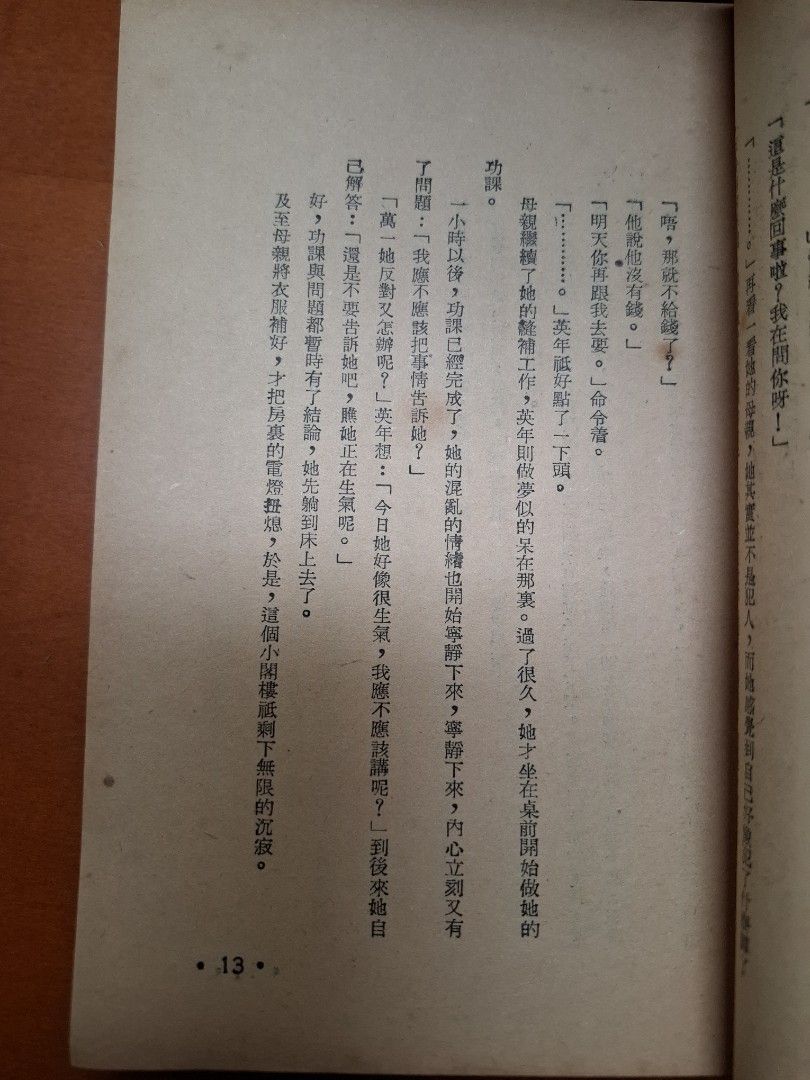 「這是什麼回事啦？我在問你呀！」
「…………。」再看一看她的母親，她其實並不是犯人，而她感覺到自己好像犯了什麼
「唔，那就不給錢了？」
「他說他沒有錢。」
「明天你再跟我去要。」命令着。
「…………。」英年祗好點了一下頭。
母親繼續了她的縫補工作，英年則做夢似的呆在那裏。過了很久，她才坐在桌前開始做她的
功課。
一小時以後，功課已經完成了，她的混亂的情緒也開始寧靜下來，寧靜下來，內心立刻又有
了問題：「我應不應該把事情告訴她？」
「萬一她反對又怎辦呢？」英年想：「今日她好像很生氣，我應不應該講呢？」到後來她自
己解答：「還是不要告訴她吧，瞧她正在生氣呢。」
好，功課與問題都暫時有了結論，她先躺到床上去了。
及至母親將衣服補好，才把房裏的電燈扭熄，於是，這個小閣樓祗剩下無限的沉寂。
• 13 •